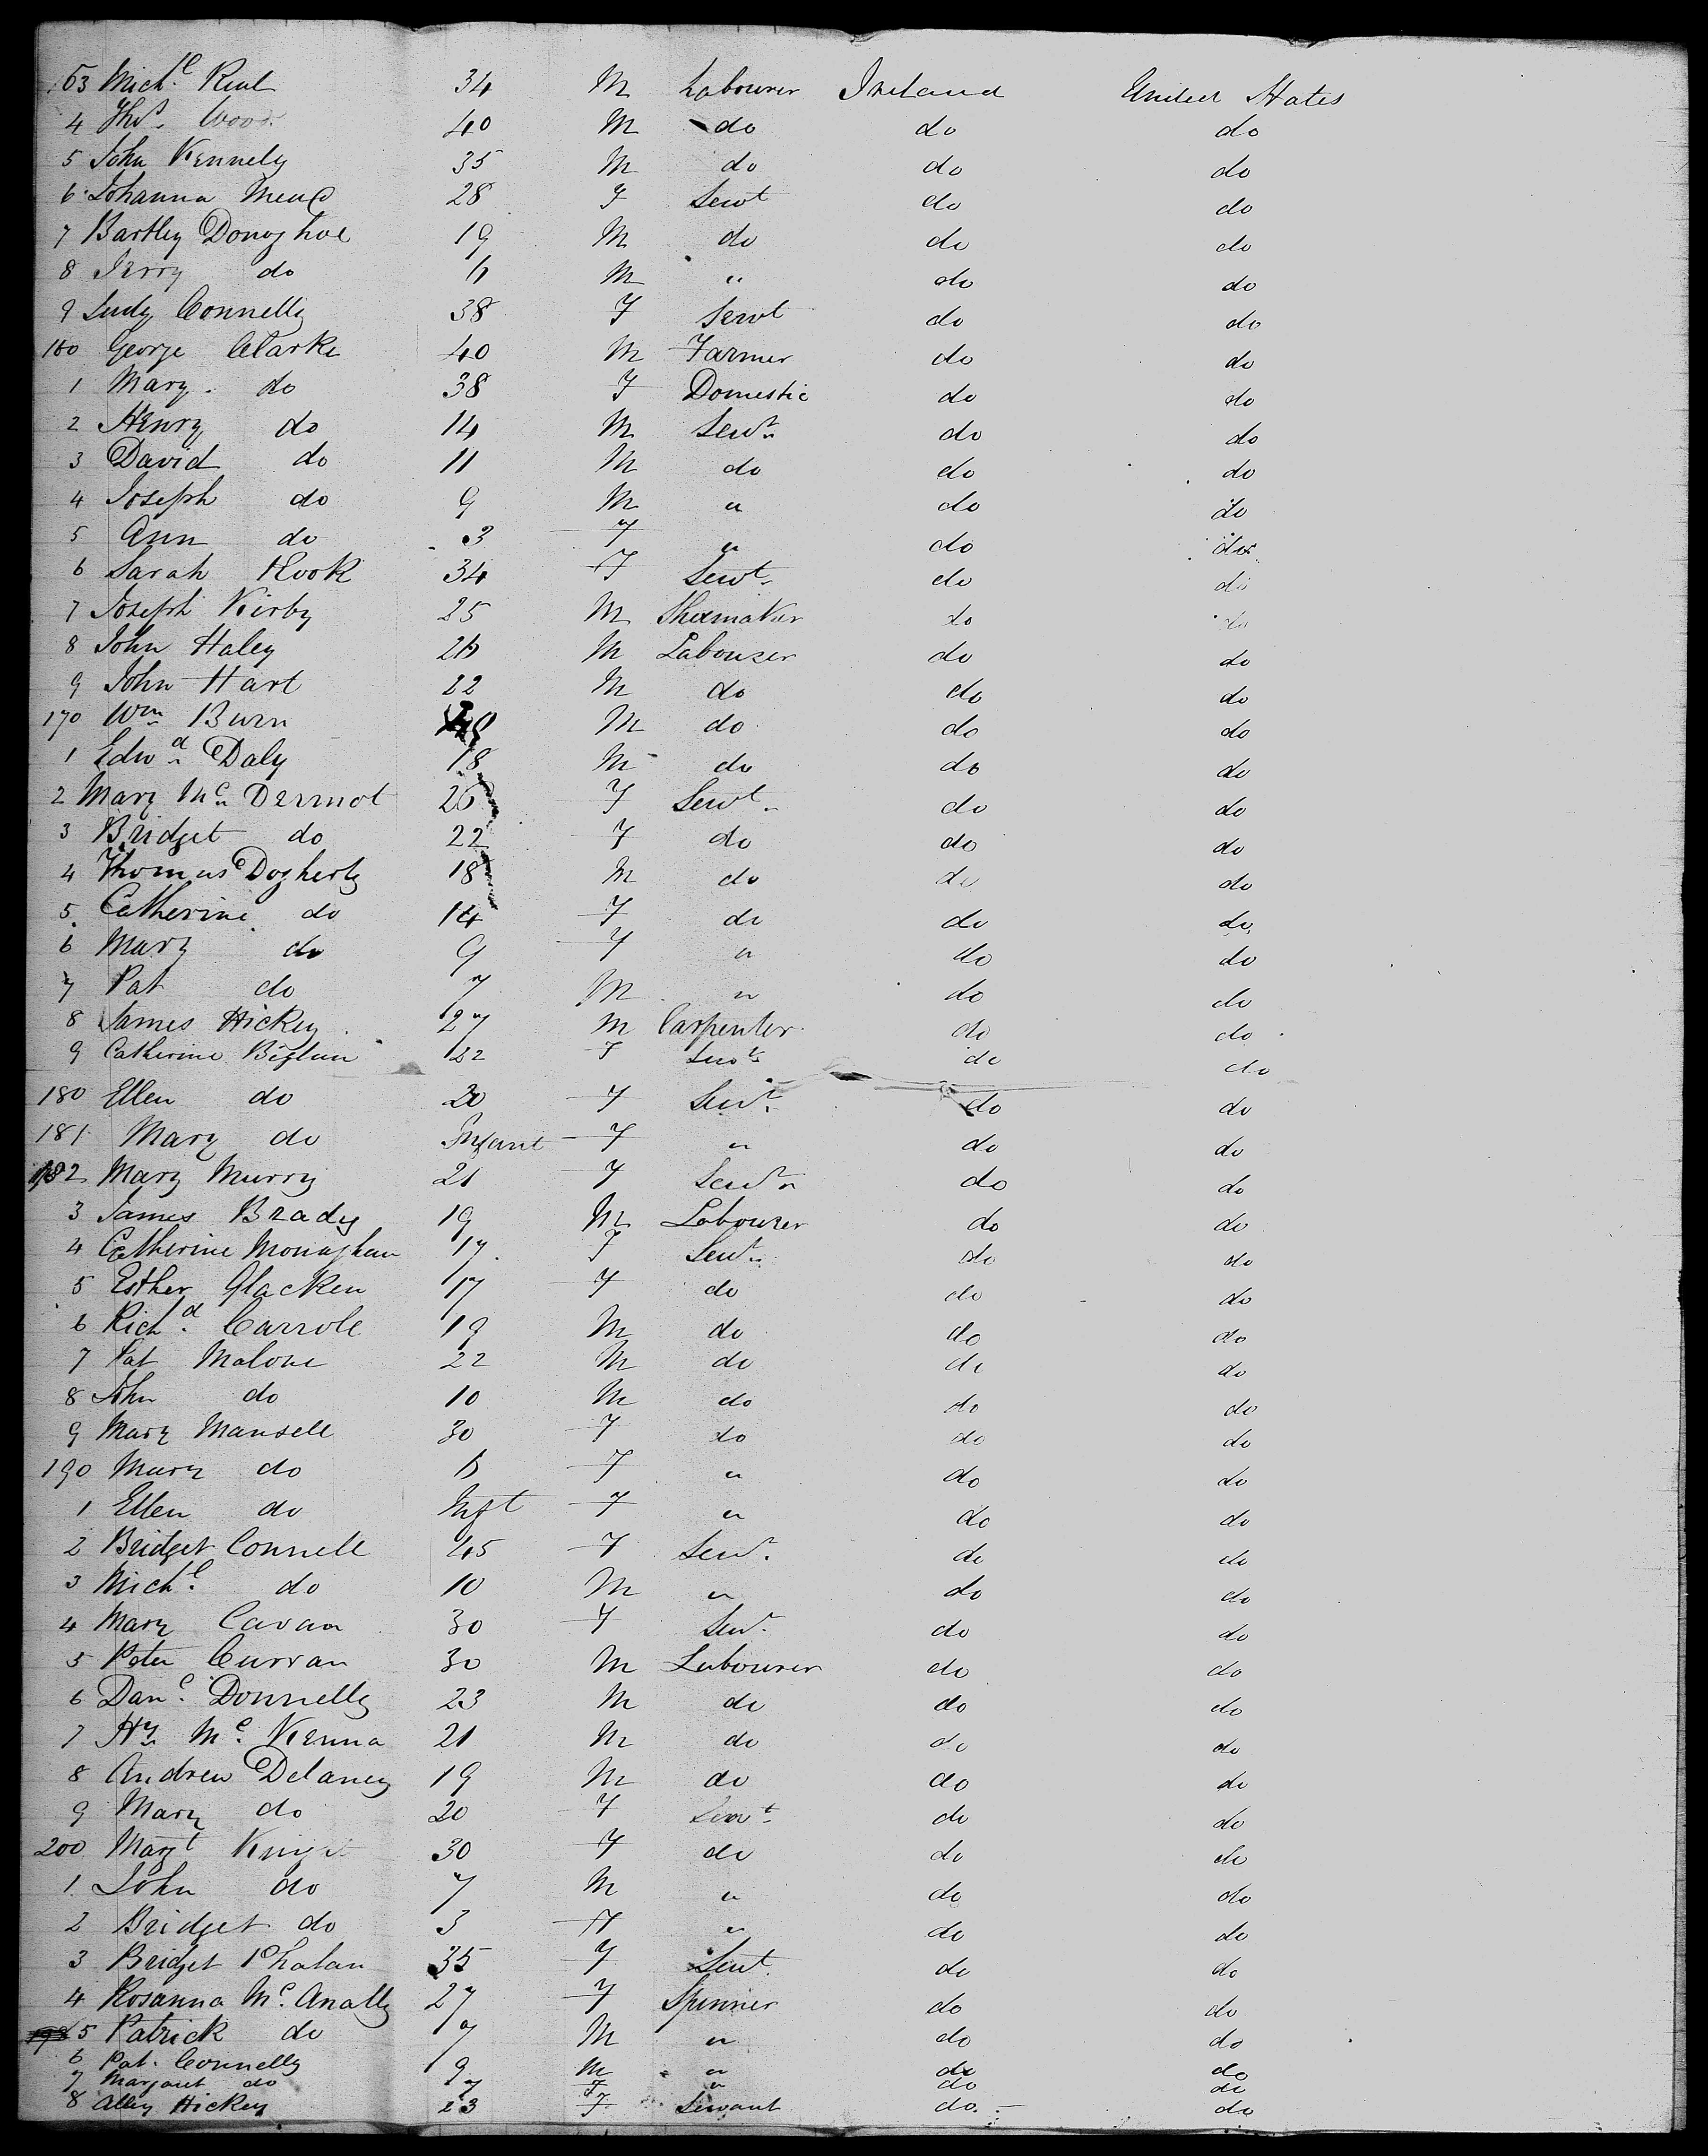 153 Mich.l Reul 34 M Labourer Ireland United States
4 Thos. Wood 40 M do do do
5 John Kennely 35 M do do do
6 Johanna 28 F Servt do do
7 Bartley Donoghoe 19 M do do do
8 Jerry do 6 M " do do
9 Judy Connelly 38 F Servt do do
160 George Clarke 40 M Farmer do do
1 Mary. do 38 F Domestic do do
2 Henry do 14 M Servt. do do
3 David do 11 M do do do
4 Joseph do 9 M " do do
5 Ann do 3 F " do do
6 Sarah Hook 34 F Servt. do do
7 Joseph Kirby 25 M Shoemaker do do
8 John Haley 26 M Labourer do do
9 John Hart 22 M do do do
170 Wm Burn M do do do
1 Edwd. Daly 18 M do do do
2 Mary Mc Dermot 26 F Servt. do do
3 Bridget do 22 F do do do
4 Thomas Dogherty 18 M do do do
5 Catherine do 14 F do do do
6 Mary do 9 F " do do
7 Pat do 7 M " do do
8 James Hickey 27 M Carpenter do do
9 Catherine Biglan 22 F Servt. do do
180 Ellen do 20 F Servt. do do
181 Mary do Infant F " do do
182 Mary Murry 21 F Servt. do do
3 James Brady 19 M Labourer do do
4 Catherine Monaghan 17 F Servt. do do
5 Esther Glacken 17 F do do do
6 Richd. Carroll 19 M do do do
7 Pat Malone 22 M do do do
8 John do 10 M do do do
9 Mary Mansell 30 F do do do
190 Mary do 6 F " do do
1 Ellen do Inft F " do do
2 Bridget Connell 45 F Servt. do do
3 Michl. do 10 M " do do
4 Mary Cavan 30 F Servt. do do
5 Peter Curran 30 M Labourer do do
6 Danl. Donnelly 23 M do do do
7 Hy. Mc. Kenna 21 M do do do
8 Andrew Delaney 19 M do do do
9 Mary do 20 F Servt. do do
200 Margt Knight 30 F do do do
1 John do 7 M " do do
2 Bridget do 3 F " do do
3 Bridget Phalan 35 F Servt. do do
4 Rosanna Mc. Anally 27 F Spinner do do
5 Patrick do 7 M " do do
6 Pat. Connelly 9 M " do do
7 Margaret do 7 F " do do
8 Alley Hickey 23 F Servant do do